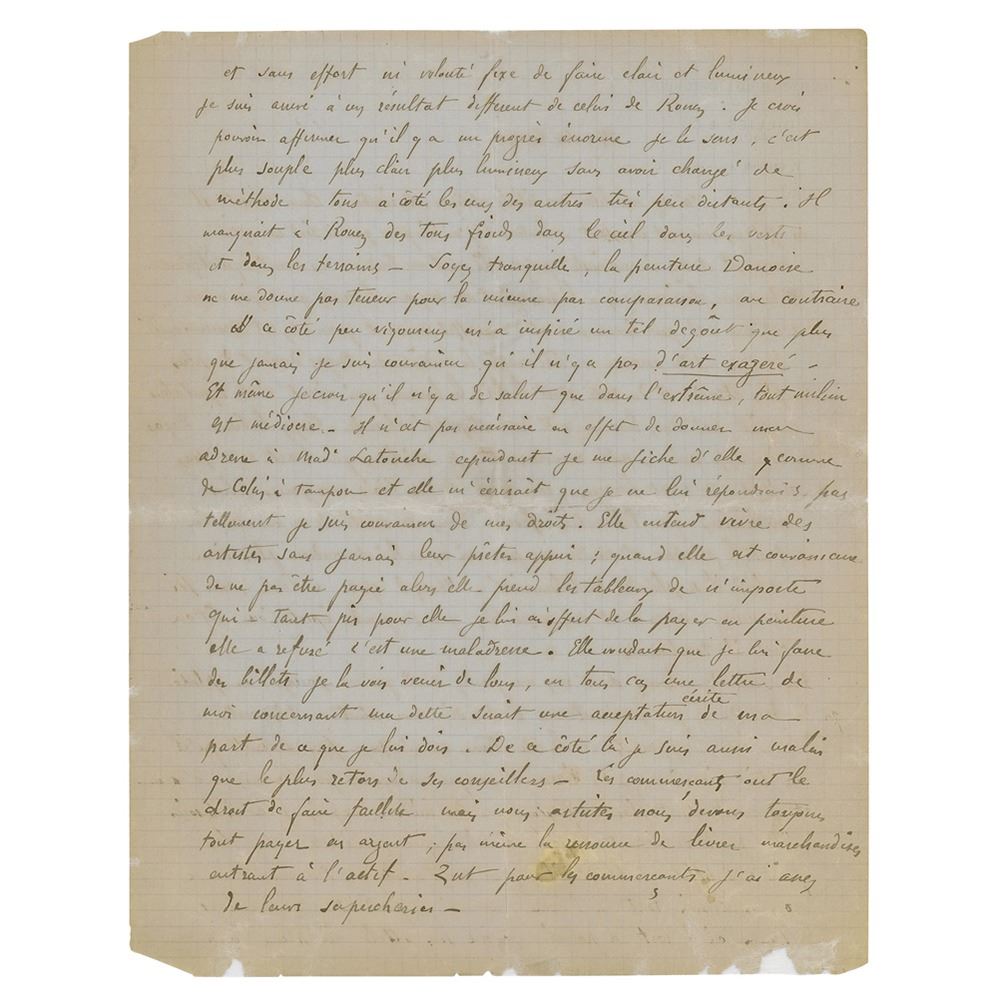 et sans effort ni volonté fixe de faire clair et lumineux
je suis arrivé à un résultat différent de celui de Rouen. Je crois
pouvoir affirmer qu'il y a un progrès énorme je le sens, c'est
plus souple plus clair plus lumineux sans avoir changé de
méthode tons à côté les uns des autres très peu distants. Il
manquait à Rouen des tons froids dans le ciel dans les verts
et dans les terrains — Soyez tranquille, la peinture Danoise
ne me donne pas terreur pour la mienne par comparaison, au contraire
ce côté peu vigoureux m'a inspiré un tel dégoût que plus
que jamais je suis convaincu qu'il n'y a pas d'art exagéré —
Et même je crois qu'il n'y a de salut que dans l'extrême, tout milieu
est médiocre — Il n'est pas nécessaire en effet de donner mon
adresse à Mad Latouche cependant je me fiche d'elle comme
de Colin à tampon et elle m'écrirait que je ne lui répondrais pas
tellement je suis convaincu de mes droits. Elle entend vivre des
artistes sans jamais leur prêter appui ; quand elle est convaincue
de ne pas être payée alors elle prend les tableaux de n'importe
qui — tant pis pour elle je lui ai offert de la payer en peinture
elle a refusé c'est une maladresse. Elle voudrait que je lui fasse
des billets je la vois venir de loin, en tous cas une lettre de
moi concernant ma dette serait une acceptation écrite de ma
part de ce que je lui dois. De ce côté là je suis aussi malin
que le plus retors de ses conseillers — Les commerçants ont le
droit de faire faillite mais nous artistes nous devons toujours
tout payer en argent ; pas même la ressource de livrer marchandises
entrant à l'actif — Zut pour les commerçants j'ai assez
de leurs supercheries —